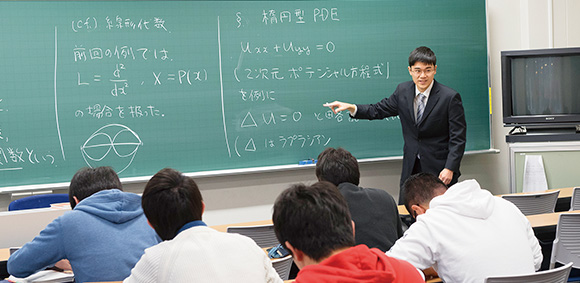 (cf.) 線形代数
前回の例では、
L = d²/dx²  X = P(x)
の場合を扱った。
§. 楕円型 PDE
Uxx + Uyy = 0
(2次元 ポテンシャル方程式)
を例に
△U = 0 と
(△ はラプラシアン
数という